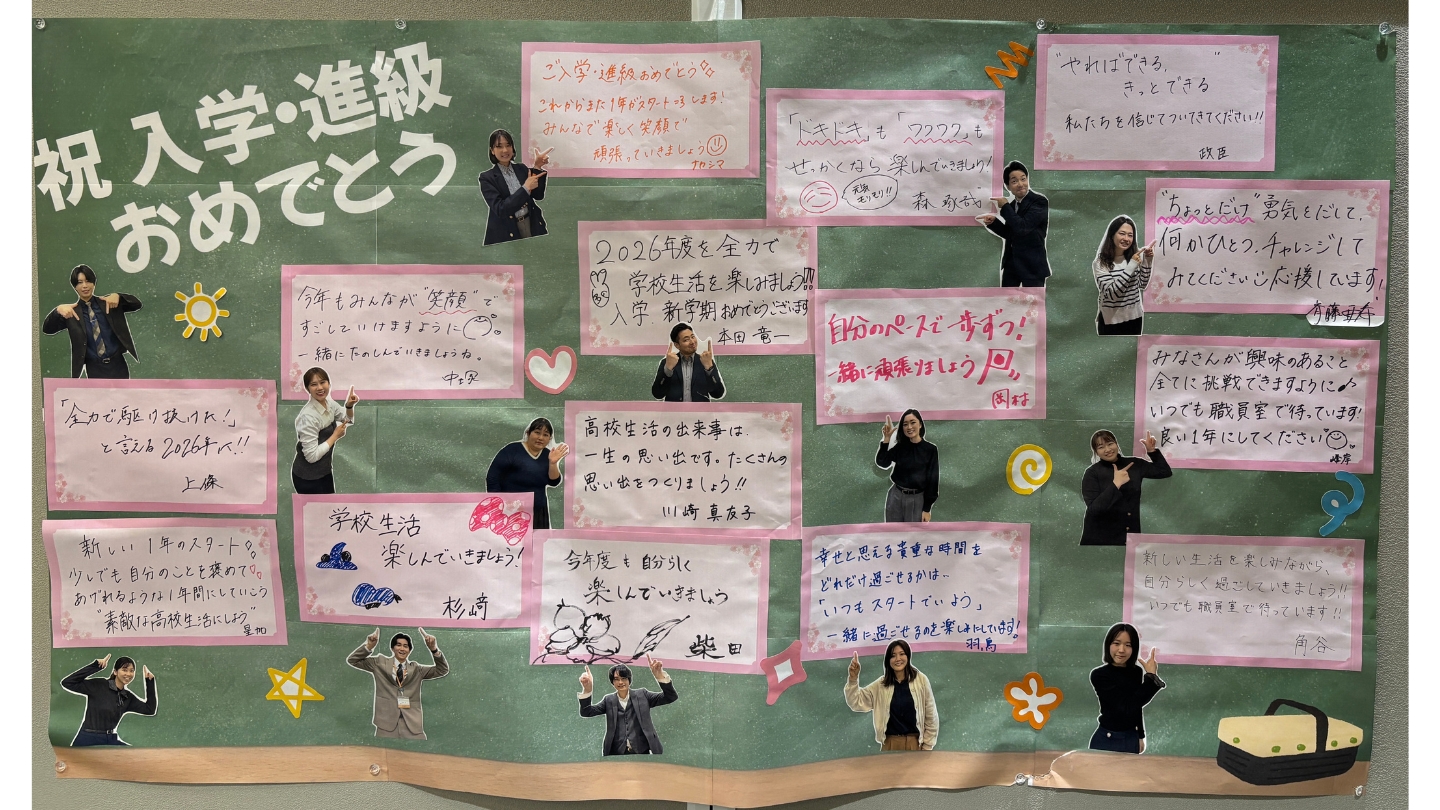 祝 入学・進級
おめでとう
ご入学・進級おめでとう
これからまた1年がスタートします!
みんなで楽しく笑顔で
頑張っていきましょう
ナカシマ
「ドキドキ」も「ワクワク」も
せっかくなら楽しんでいきましょう!
元気モリモリ!!
森 琢哉
"やればできる,
きっとできる"
私たちを信じてついてきてください!!
政臣
"ちょっとだけ"勇気をだして、
何かひとつ、チャレンジして
みてください 応援しています!
2026年度を全力で
学校生活を楽しみましょう!!
入学 新学期おめでとうございます
本田 竜一
今年もみんなが"笑顔"で
すごしていけますように
一緒にたのしんでいきましょうね。
自分のペースで一歩ずつ!
一緒に頑張りましょう
村
みなさんが興味のあること
全てに挑戦できますように♪
いつでも職員室で待っています!
良い1年にしてください
峰岸
「全力で駆け抜けた!」
と言える2026年へ!!
上條
高校生活の出来事は、
一生の思い出です。たくさんの
思い出をつくりましょう!!
川崎 真友子
新しい1年のスタート
少しでも自分のことを褒めて
あげれるような1年間にしていこう
"素敵な高校生活にしよう"
星加
学校生活
楽しんでいきましょう!
杉崎
今年度も自分らしく
楽しんでいきましょう
柴田
幸せと思える貴重な時間を
どれだけ過ごせるかは…
「いつもスタートでいよう」
一緒に過ごせるのを楽しみにしています!
羽鳥
新しい生活を楽しみながら、
自分らしく過ごしていきましょう!!
いつでも職員室で待っています!!
角谷